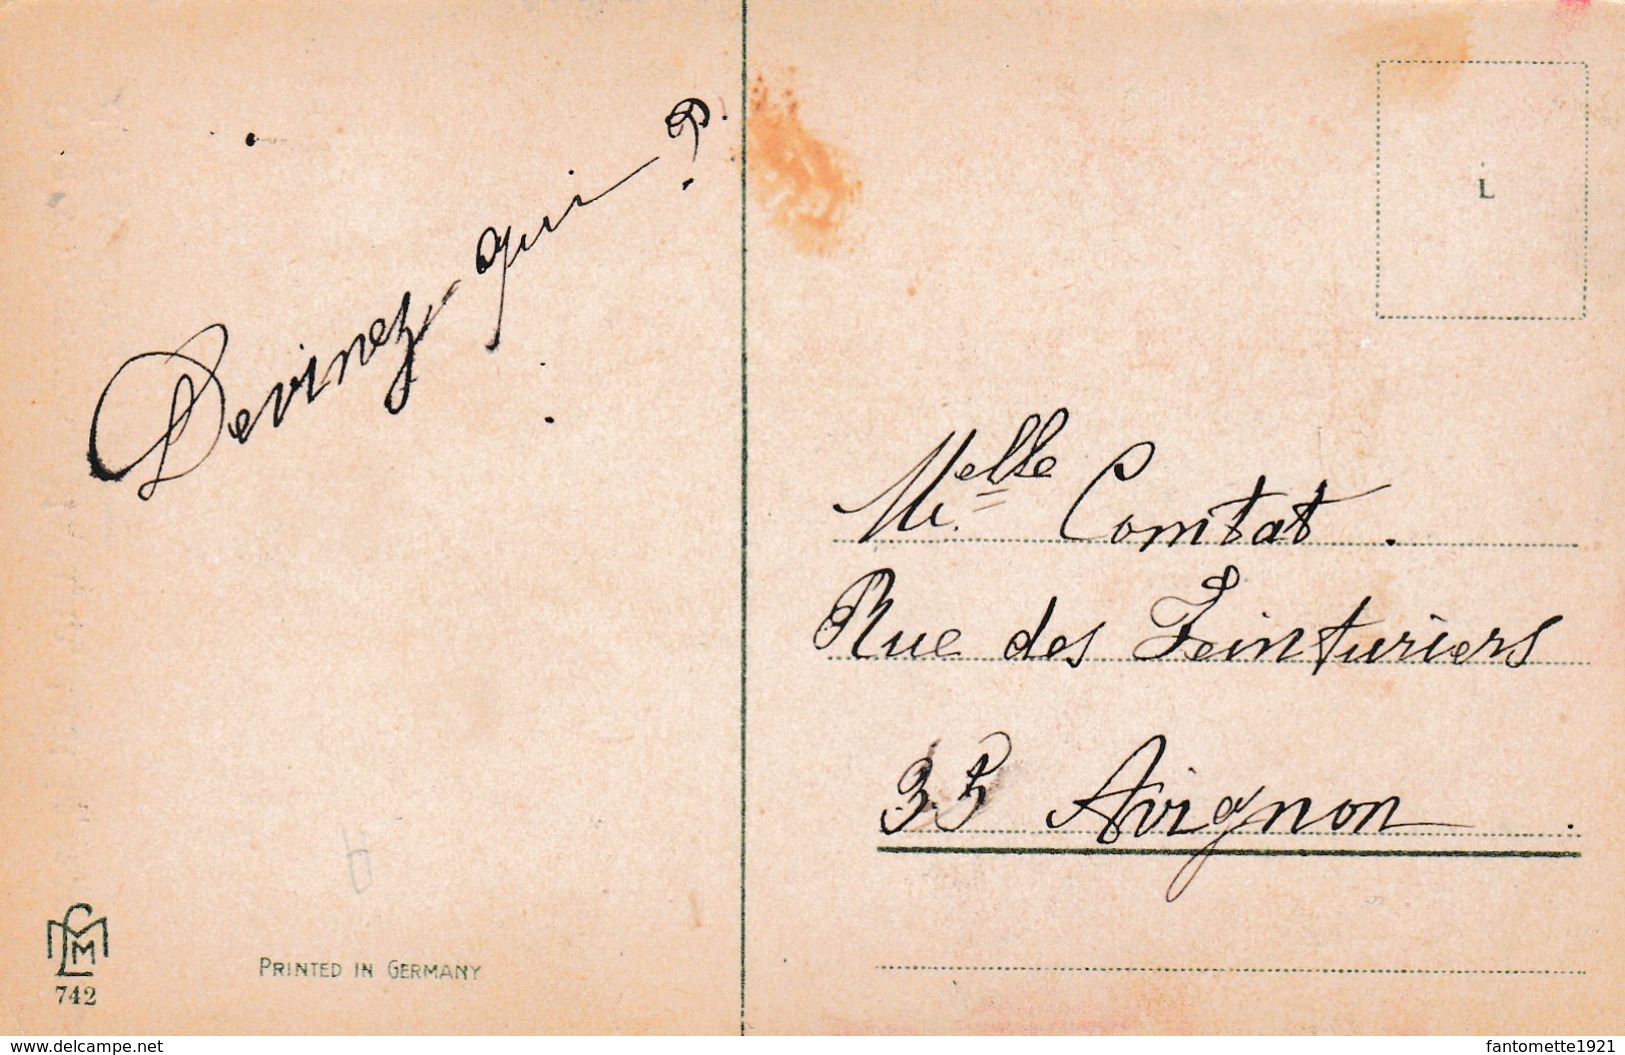 Devinez qui ?
L
Melle Comtat.
Rue des Teinturiers
35 Avignon.
742
PRINTED IN GERMANY
www.delcampe.net
fantomette1921